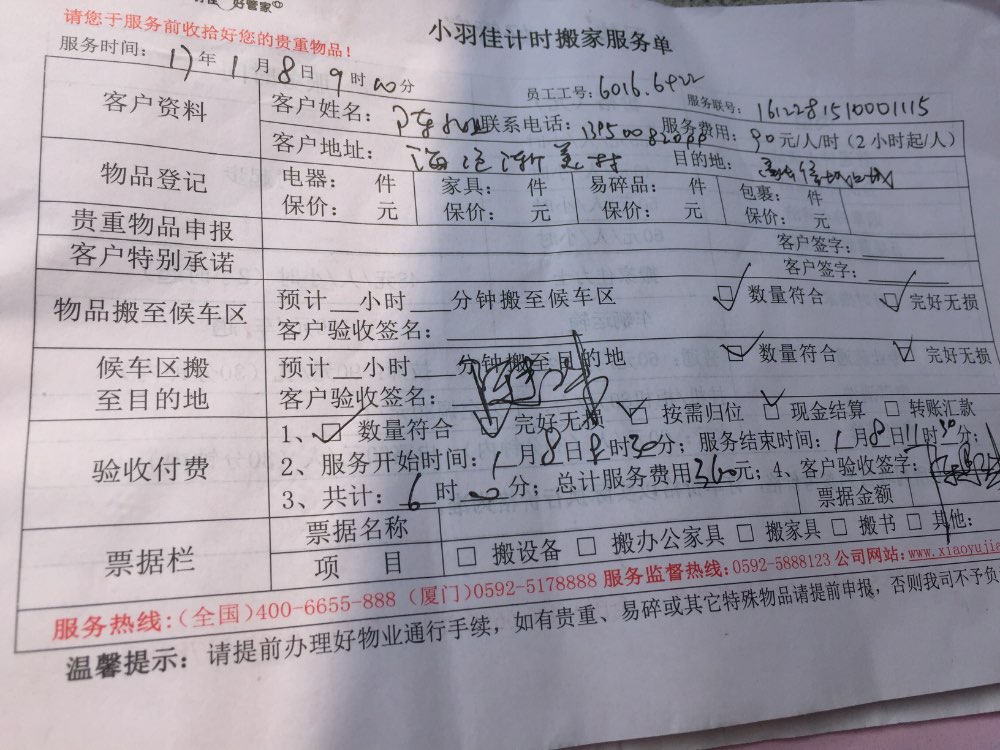 好管家
请您于服务前收拾好您的贵重物品！
小羽佳计时搬家服务单
服务时间： 17年1月8日9时00分
员工工号：6016.6422
服务联号：1612281510001115
客户资料
客户姓名： 联系电话： 服务费用：90元/人/时（2小时起/人）
客户地址： 目的地：
物品登记
电器： 件 家具： 件 易碎品： 件 包裹： 件
保价： 元 保价： 元 保价： 元 保价： 元
贵重物品申报 客户签字：
客户特别承诺 客户签字：
物品搬至候车区
预计__小时___分钟搬至候车区 ☑ 数量符合 ☑ 完好无损
客户验收签名：
候车区搬至目的地
预计__小时___分钟搬至目的地 ☑ 数量符合 ☑ 完好无损
客户验收签名：
验收付费
1、☑ 数量符合 ☑ 完好无损 ☑ 按需归位 ☑ 现金结算 □ 转账汇款
2、服务开始时间：1月8日8时30分；服务结束时间：1月8日11时30分；
3、共计：6时00分；总计服务费用360元；4、客户验收签字：
票据栏
票据名称 票据金额
项 目 □ 搬设备 □ 搬办公家具 □ 搬家具 □ 搬书 □ 其他：
服务热线：（全国）400-6655-888（厦门）0592-5178888 服务监督热线：0592-5888123 公司网站：www.xiaoyujia
温馨提示：请提前办理好物业通行手续，如有贵重、易碎或其它特殊物品请提前申报，否则我司不予负